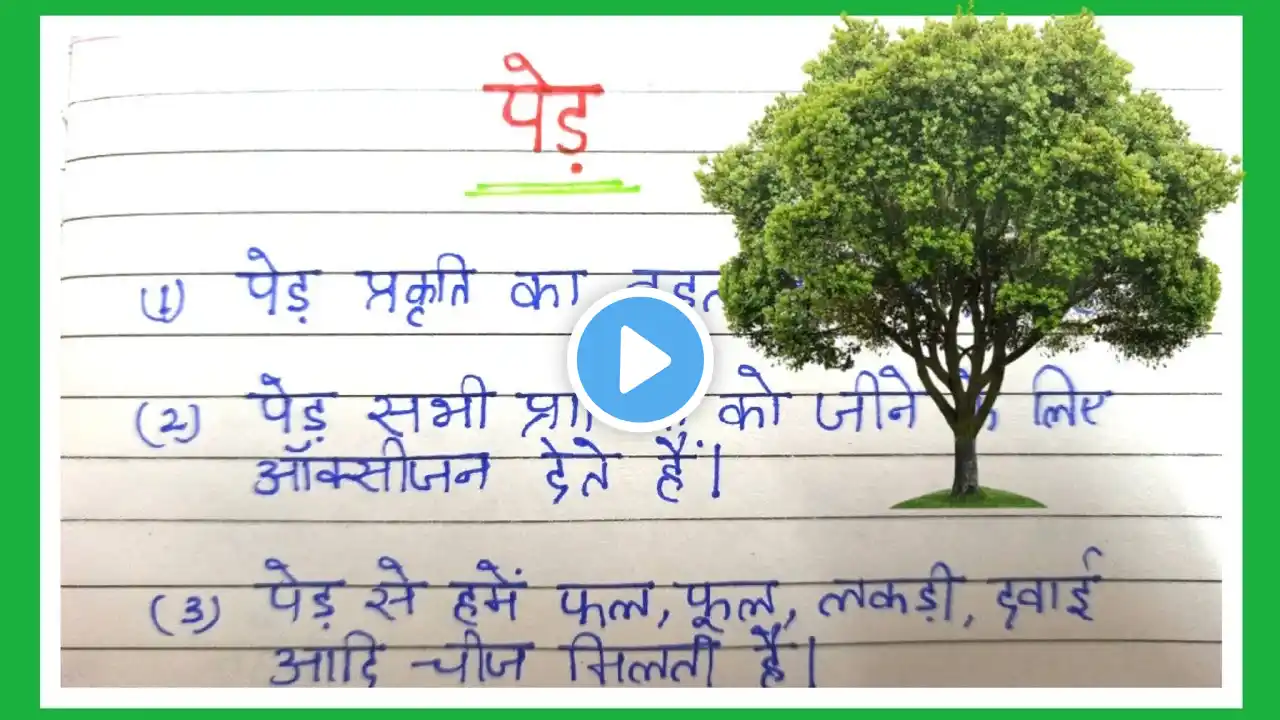 पेड़
(1) पेड़ प्रकृति का
(2) पेड़ सभी को जीने लिए
ऑक्सीजन देते हैं।
(3) पेड़ से हमें फल, फूल, लकड़ी, दवाई
आदि चीज मिलती है।